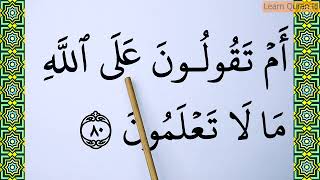 Learn Quran
أَمْ تَقُولُونَ عَلَى ٱللَّهِ
مَا لَا تَعْلَمُونَ ٨٠